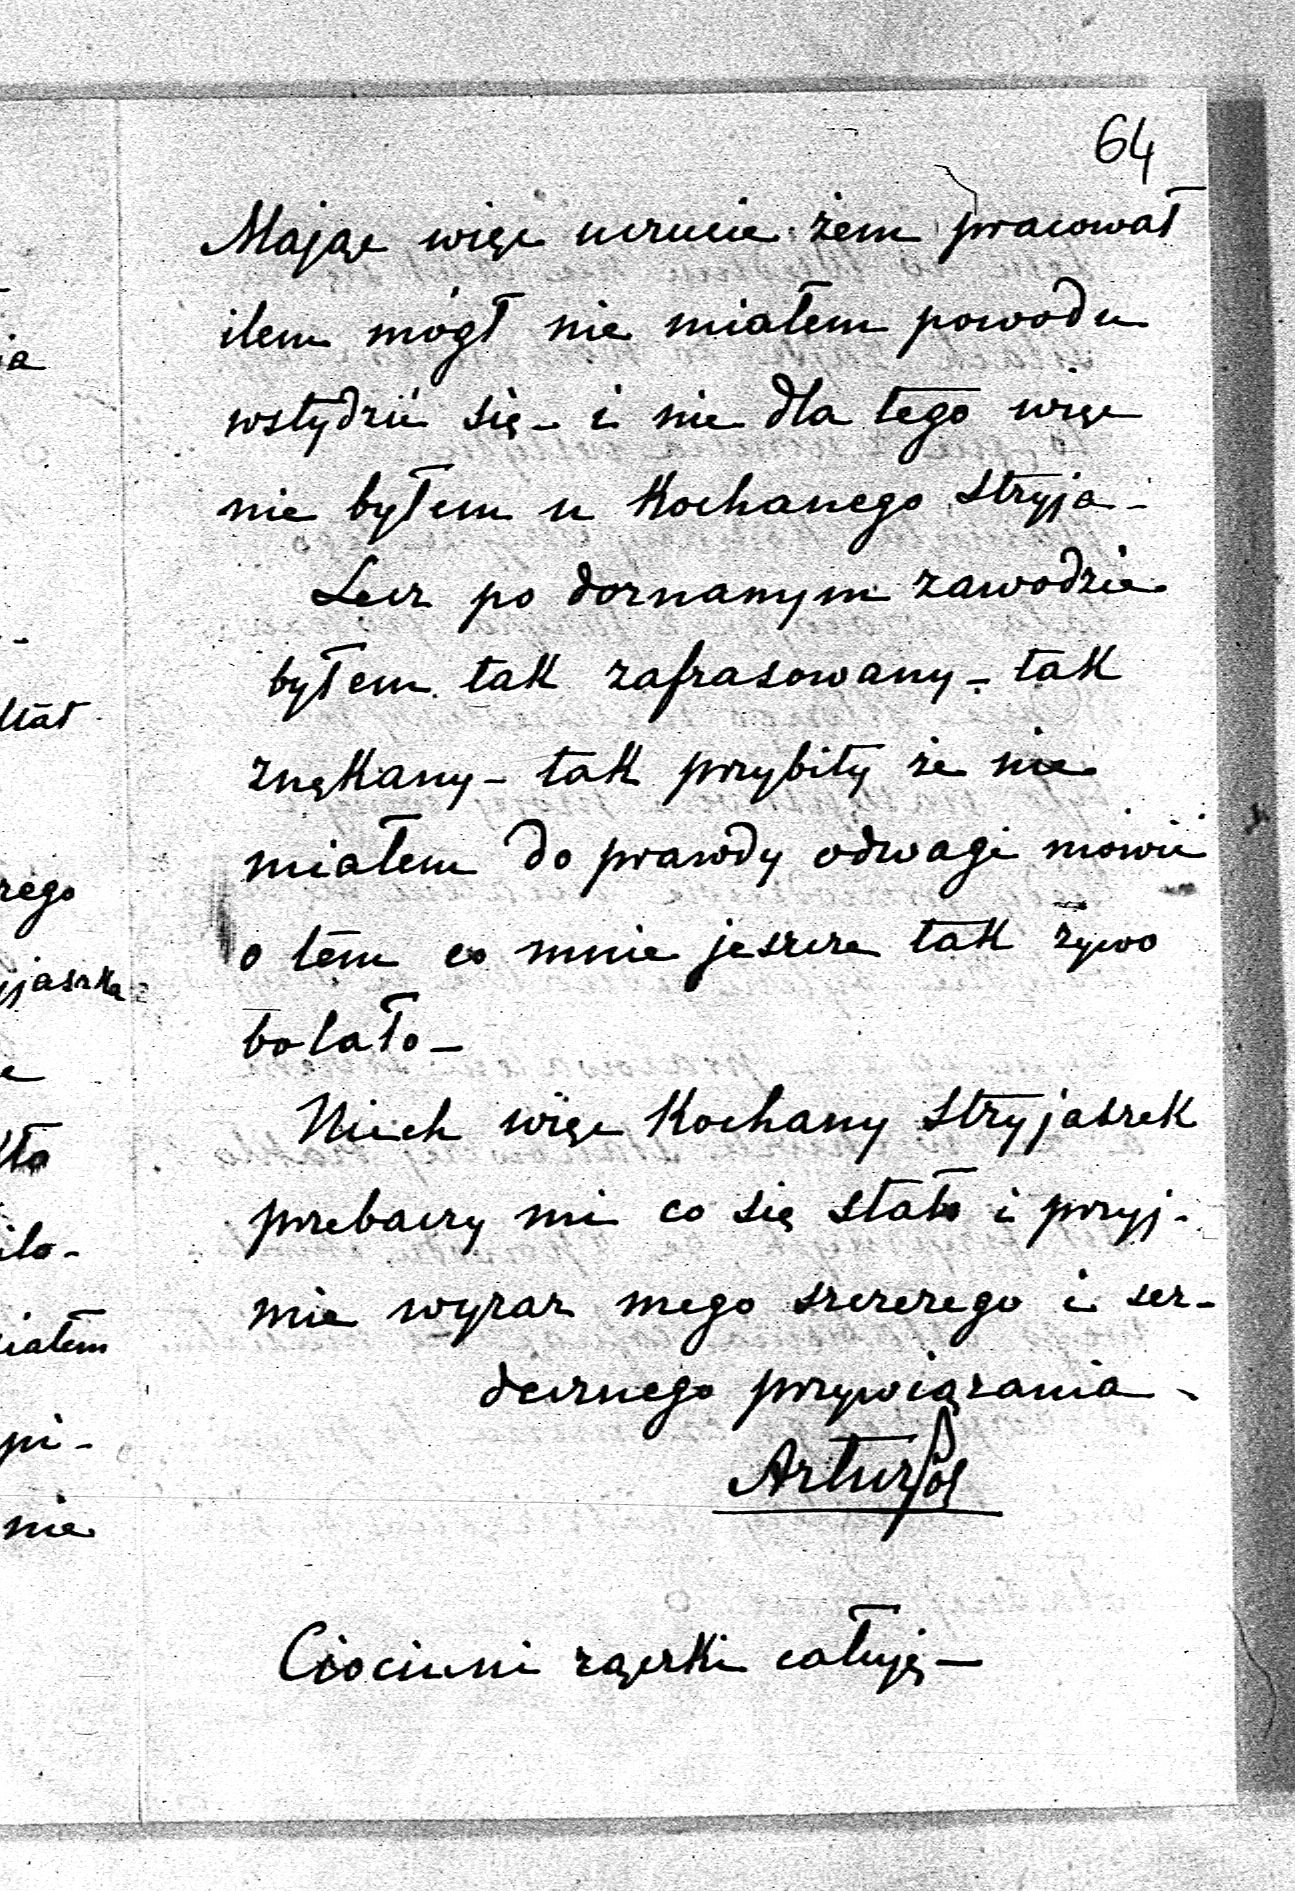 64
Mając więc uczucie żem pracował
ilem mógł nie miałem powodu
wstydzić się – i nie dla tego więc
nie byłem u Kochanego Stryja –
Lecz po doznanym zawodzie
byłem tak zafrasowany – tak
znękany – tak przybity że nie
miałem do prawdy odwagi mówić
o tém co mnie jeszcze tak żywo
bolało –
Niech więc Kochany Stryjaszek
przebaczy mi co się stało i przyj-
mie wyraz mego szczerego i ser-
decznego przywiązania –
Artur Pol
Ciociuni rączki całuję –
ia
ktat
rego
yjaszka
e
kło
ilo-
iałem
pi-
nie